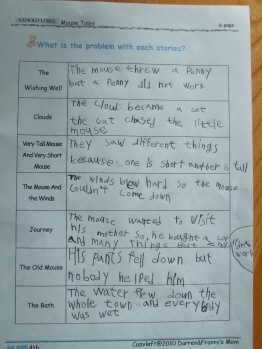 ARNOLD LOBEL
Mouse Tales
6 page
What is the problem with each stories?
The
Wishing Well
The mouse threw a Penny
but a Penny did not work
Clouds
The cloud became a cat
the cat chased the little
mouse
Very Tall Mouse
And Very Short
Mouse
They saw different things
because one is short another is tall
The Mouse And
the Winds
The winds blew hard so the mouse
couldn't come down
Journey
The mouse wanted to visit
his mother so, he bought a car
and many things
work
The Old Mouse
His pants fell down but
nobody helped him
The Bath
The water flew down the
whole town and everybody
was wet
4th
Copyleft©2010 Darren&Franny's Mom